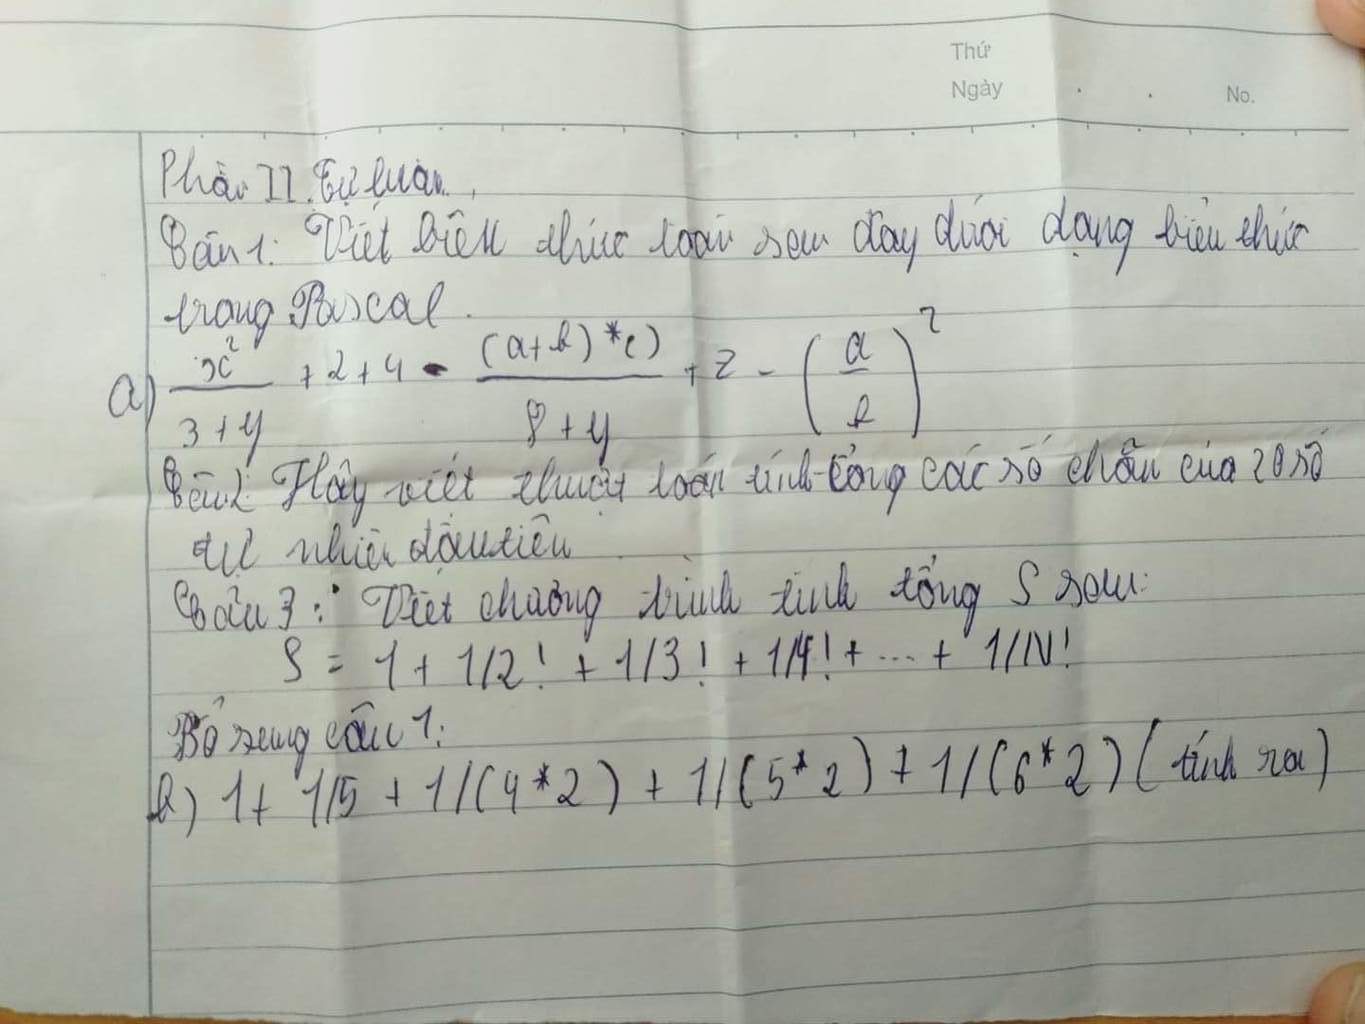 Thứ
Ngày
No.
Phần II. Tự luận.
Câu 1: Viết biểu thức toán sau đây dưới dạng biểu thức
trong Pascal.
a) x²/(3+y) + 2 + 4 - ((a+b)*c)/(8+y) + z - (a/b)²
Câu 2: Hãy viết thuật toán tính tổng các số chẵn của 20 số
tự nhiên đầu tiên
Câu 3: Viết chương trình tính tổng S sau:
S = 1 + 1/2! + 1/3! + 1/4! + ... + 1/N!
Bổ sung câu 1:
b) 1 + 1/5 + 1/(4*2) + 1/(5*2) + 1/(6*2) (tính ra)